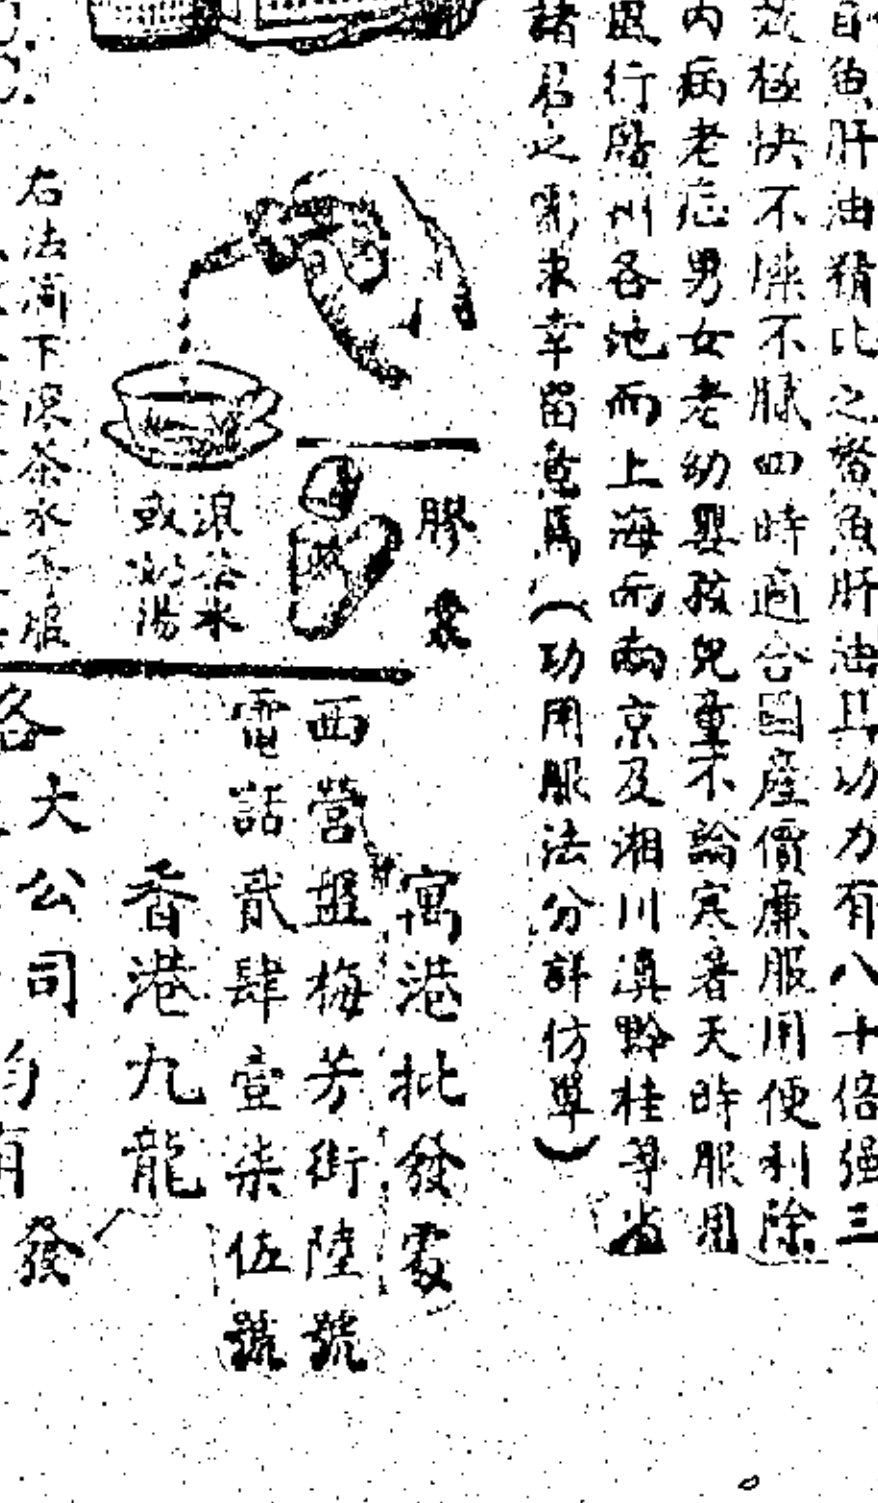 魚肝油精比之鰵魚肝油其功力有八十倍強三
極快不燥不膩四時適合國產價廉服用便利除
內病老忌男女老幼嬰孩兒童不論寒暑天時服用
行銷州各地而上海而兩京及湘川滇黔桂等省
諸君之需求幸留意焉（功用服法分詳仿單）
膠囊
滾茶水
或湯
右法滴下滾茶水等服
寓港批發處
西營盤梅芳街陸號
電話貳肆壹柒伍號
香港九龍
各大公司均有發